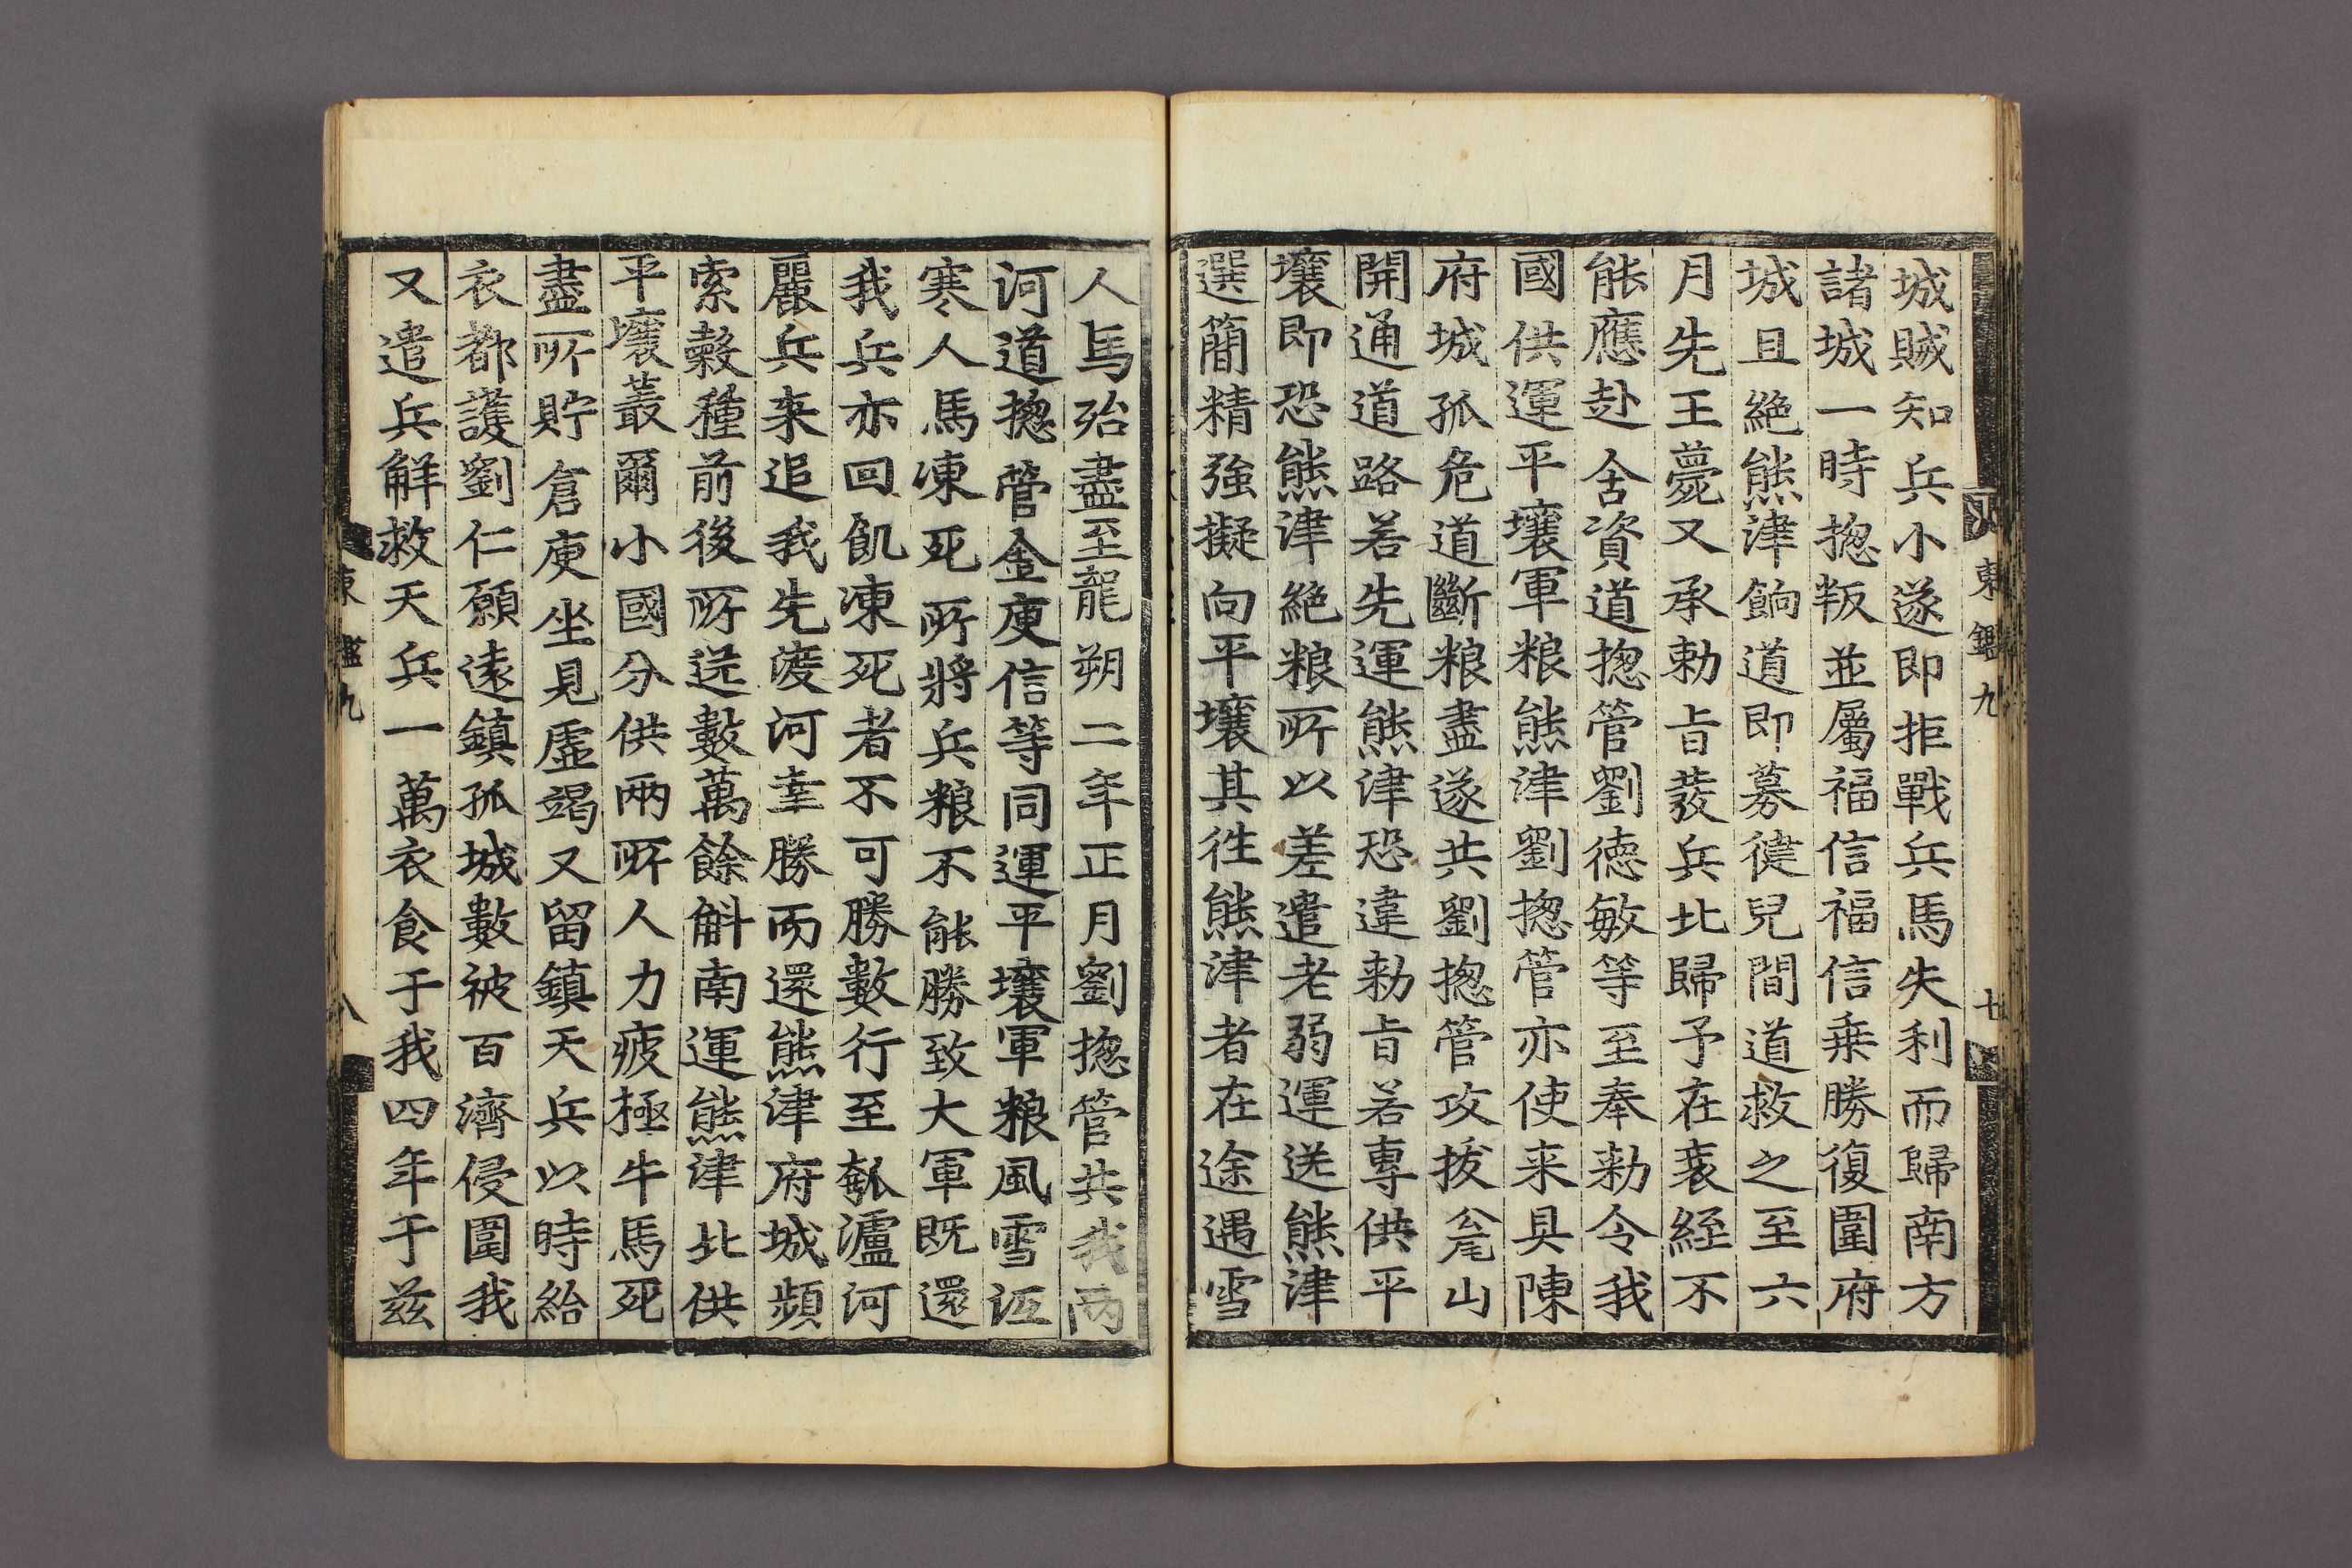 城賊知兵小遂即拒戰兵馬失利而歸南方
諸城一時揔叛並屬福信福信乗勝復圍府
城且絶熊津餉道即募徤兒間道救之至六
月先王薨又承勅旨發兵北歸予在衰絰不
能應赴舍資道揔管劉德敏等至奉勅令我
國供運平壤軍粮熊津劉揔管亦使来具陳
府城孤危道斷粮盡遂共劉揔管攻拔瓮山
開通道路若先運熊津恐違勅旨若專供平
壤即恐熊津絶粮所以差遣老弱運送熊津
選簡精強擬向平壤其徃熊津者在途遇雪
東鑑九
七
人馬殆盡至龍朔二年正月劉揔管共我兩
河道揔管金庾信等同運平壤軍粮風雪沍
寒人馬凍死所將兵粮不能勝致大軍既還
我兵亦回飢凍死者不可勝數行至瓠瀘河
麗兵来追我先渡河幸勝而還熊津府城頻
索穀種前後所送數萬餘斛南運熊津北供
平壤叢爾小國分供兩所人力疲極牛馬死
盡所貯倉庾坐見虛竭又留鎮天兵以時給
衣都護劉仁願遠鎮孤城數被百濟侵圍我
又遣兵解救天兵一萬衣食于我四年于兹
東鑑九
八